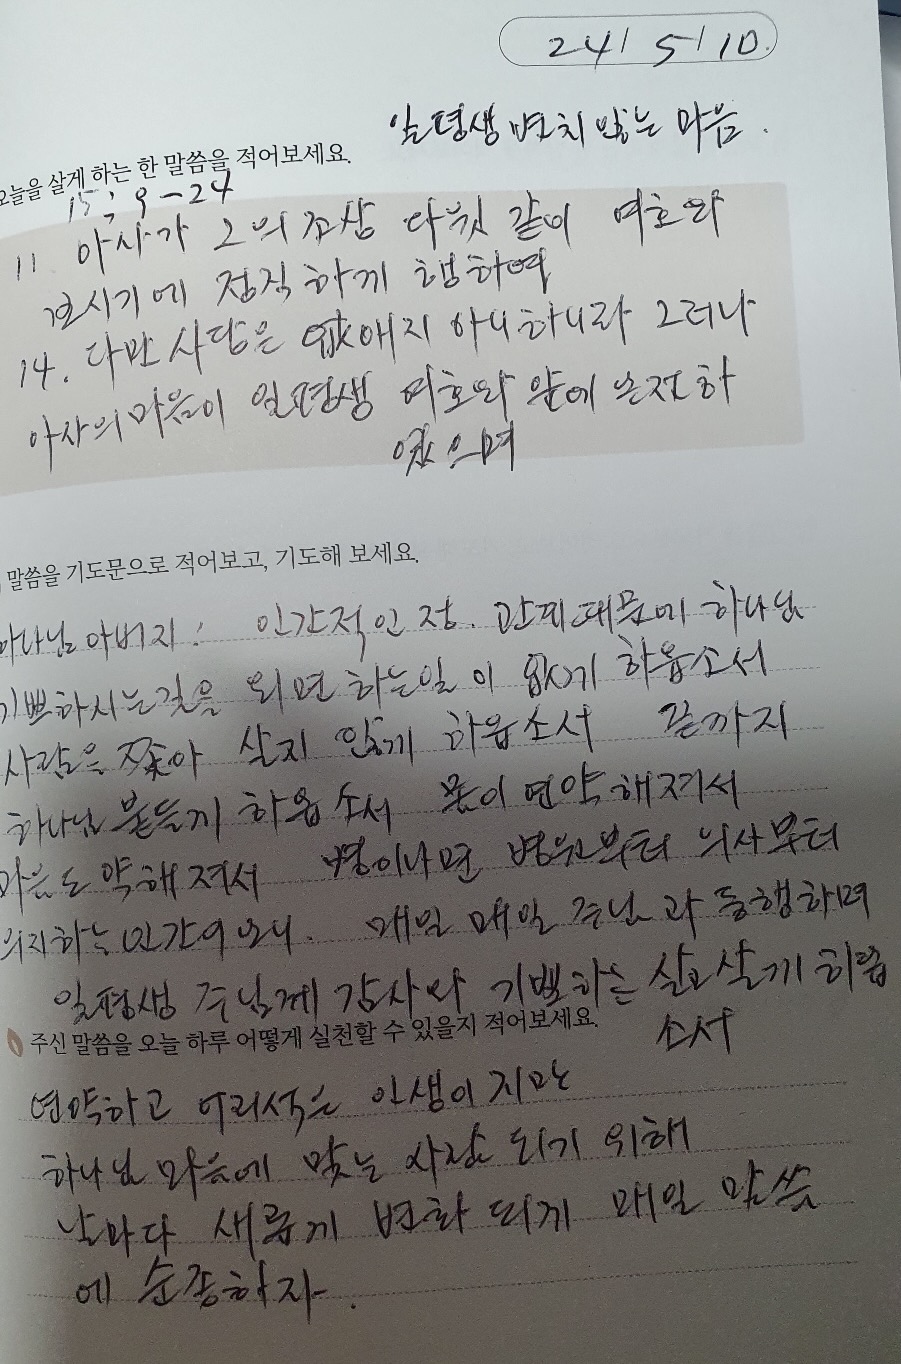 24/ 5/ 10.
일평생 변치 않는 마음.
오늘을 살게 하는 한 말씀을 적어보세요.
15; 9-24
11 아사가 그의 조상 다윗 같이 여호와
보시기에 정직하게 행하여
14. 다만 산당은 없애지 아니하니라 그러나
아사의 마음이 일평생 여호와 앞에 온전하
였으며
말씀을 기도문으로 적어보고, 기도해 보세요.
하나님 아버지! 인간적인 정. 관계때문에 하나님
기쁘하시는것을 외면 하는일 이 없게 하옵소서
사람을 쫓아 살지 않게 하옵소서 끝까지
하나님 붙들게 하옵소서 몸이 연약해져서
마음도 약해져서 병이나면 병원부터 의사부터
의지하는 인간이오니. 매일 매일 주님과 동행하며
일평생 주님께 감사와 기쁨하는 살게 하옵
소서
주신 말씀을 오늘 하루 어떻게 실천할 수 있을지 적어보세요.
연약하고 어리석은 인생이지만
하나님 마음에 맞는 사람 되기 위해
날마다 새롭게 변화 되게 매일 말씀
에 순종하자.